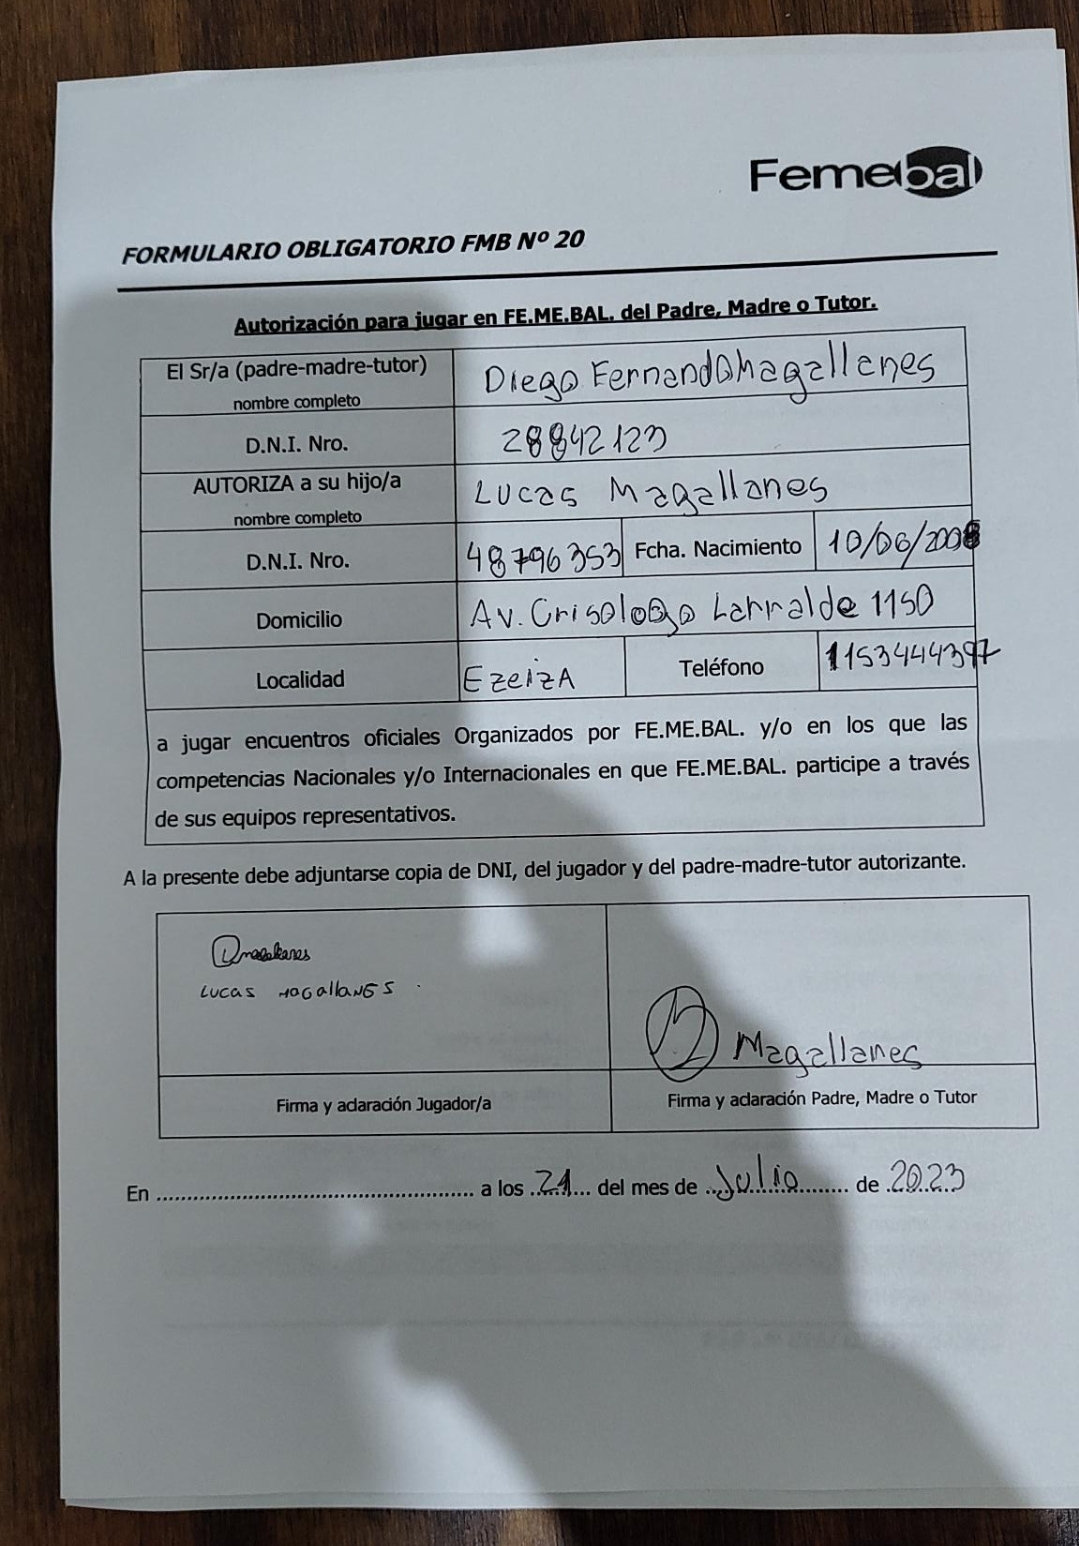 Femebal
FORMULARIO OBLIGATORIO FMB Nº 20
Autorización para jugar en FE.ME.BAL. del Padre, Madre o Tutor.
El Sr/a (padre-madre-tutor)
nombre completo
Diego Fernando Magallanes
D.N.I. Nro.
28842123
AUTORIZA a su hijo/a
nombre completo
Lucas Magallanes
D.N.I. Nro.
48796353
Fcha. Nacimiento
10/06/2008
Domicilio
Av. Crisologo Larralde 1150
Localidad
Ezeiza
Teléfono
1153444397
a jugar encuentros oficiales Organizados por FE.ME.BAL. y/o en los que las
competencias Nacionales y/o Internacionales en que FE.ME.BAL. participe a través
de sus equipos representativos.
A la presente debe adjuntarse copia de DNI, del jugador y del padre-madre-tutor autorizante.
Lmagallanes
Lucas Magallanes
Magallanes
Firma y aclaración Jugador/a
Firma y aclaración Padre, Madre o Tutor
En ........................ a los 21 del mes de Julio de 2023